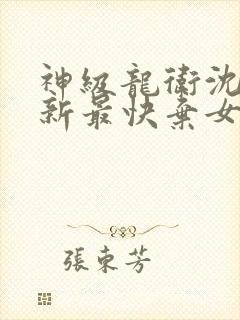 神級龍衛沈
新最快棄女
張東芳